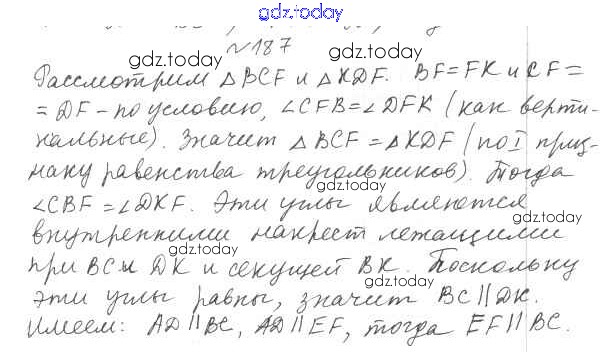 gdz.today
№187
gdz.today gdz.today
Рассмотрим △BCF и △KDF. BF=FK и CF=
=DF-по условию, ∠CFB=∠DFK (как верти-
кальные). Значит △BCF=△KDF (по I приз-
наку равенства треугольников). Тогда
gdz.today
∠CBF=∠DKF. Эти углы являются
внутренними накрест лежащими
gdz.today gdz.today
при BC и DK и секущей BK. Поскольку
эти углы равны, значит BC∥DK.
gdz.today gdz.today
Имеем: AD∥BC, AD∥EF, тогда EF∥BC.